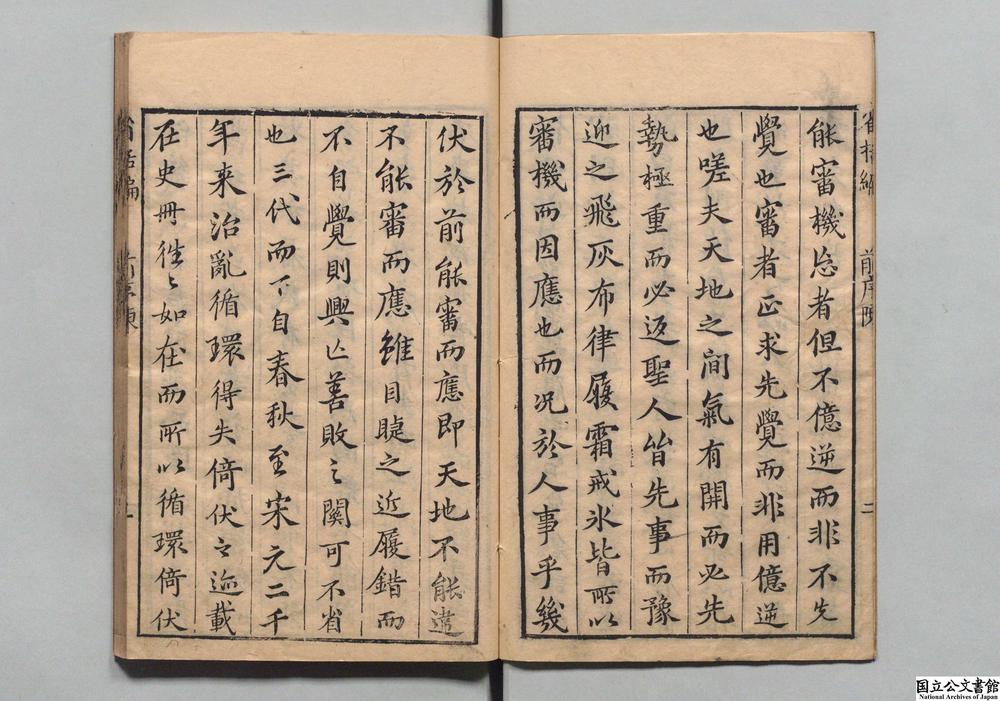 能審機忘者但不億逆而非不先
覺也審者正求先覺而非用億逆
也嗟夫天地之間氣有開而必先
勢極重而必返聖人皆先事而豫
迎之飛灰布律履霜戒氷皆所以
審機而因應也而况於人事乎幾
伏於前能審而應即天地不能違
不能審而應雖目睫之近履錯而
不自覺則興亡善敗之關可不省
也三代而下自春秋至宋元二千
年来治亂循環得失倚伏之迹載
在史冊徃〻如在而所以循環倚伏
省括編 前序陳 二
国立公文書館
National Archives of Japan